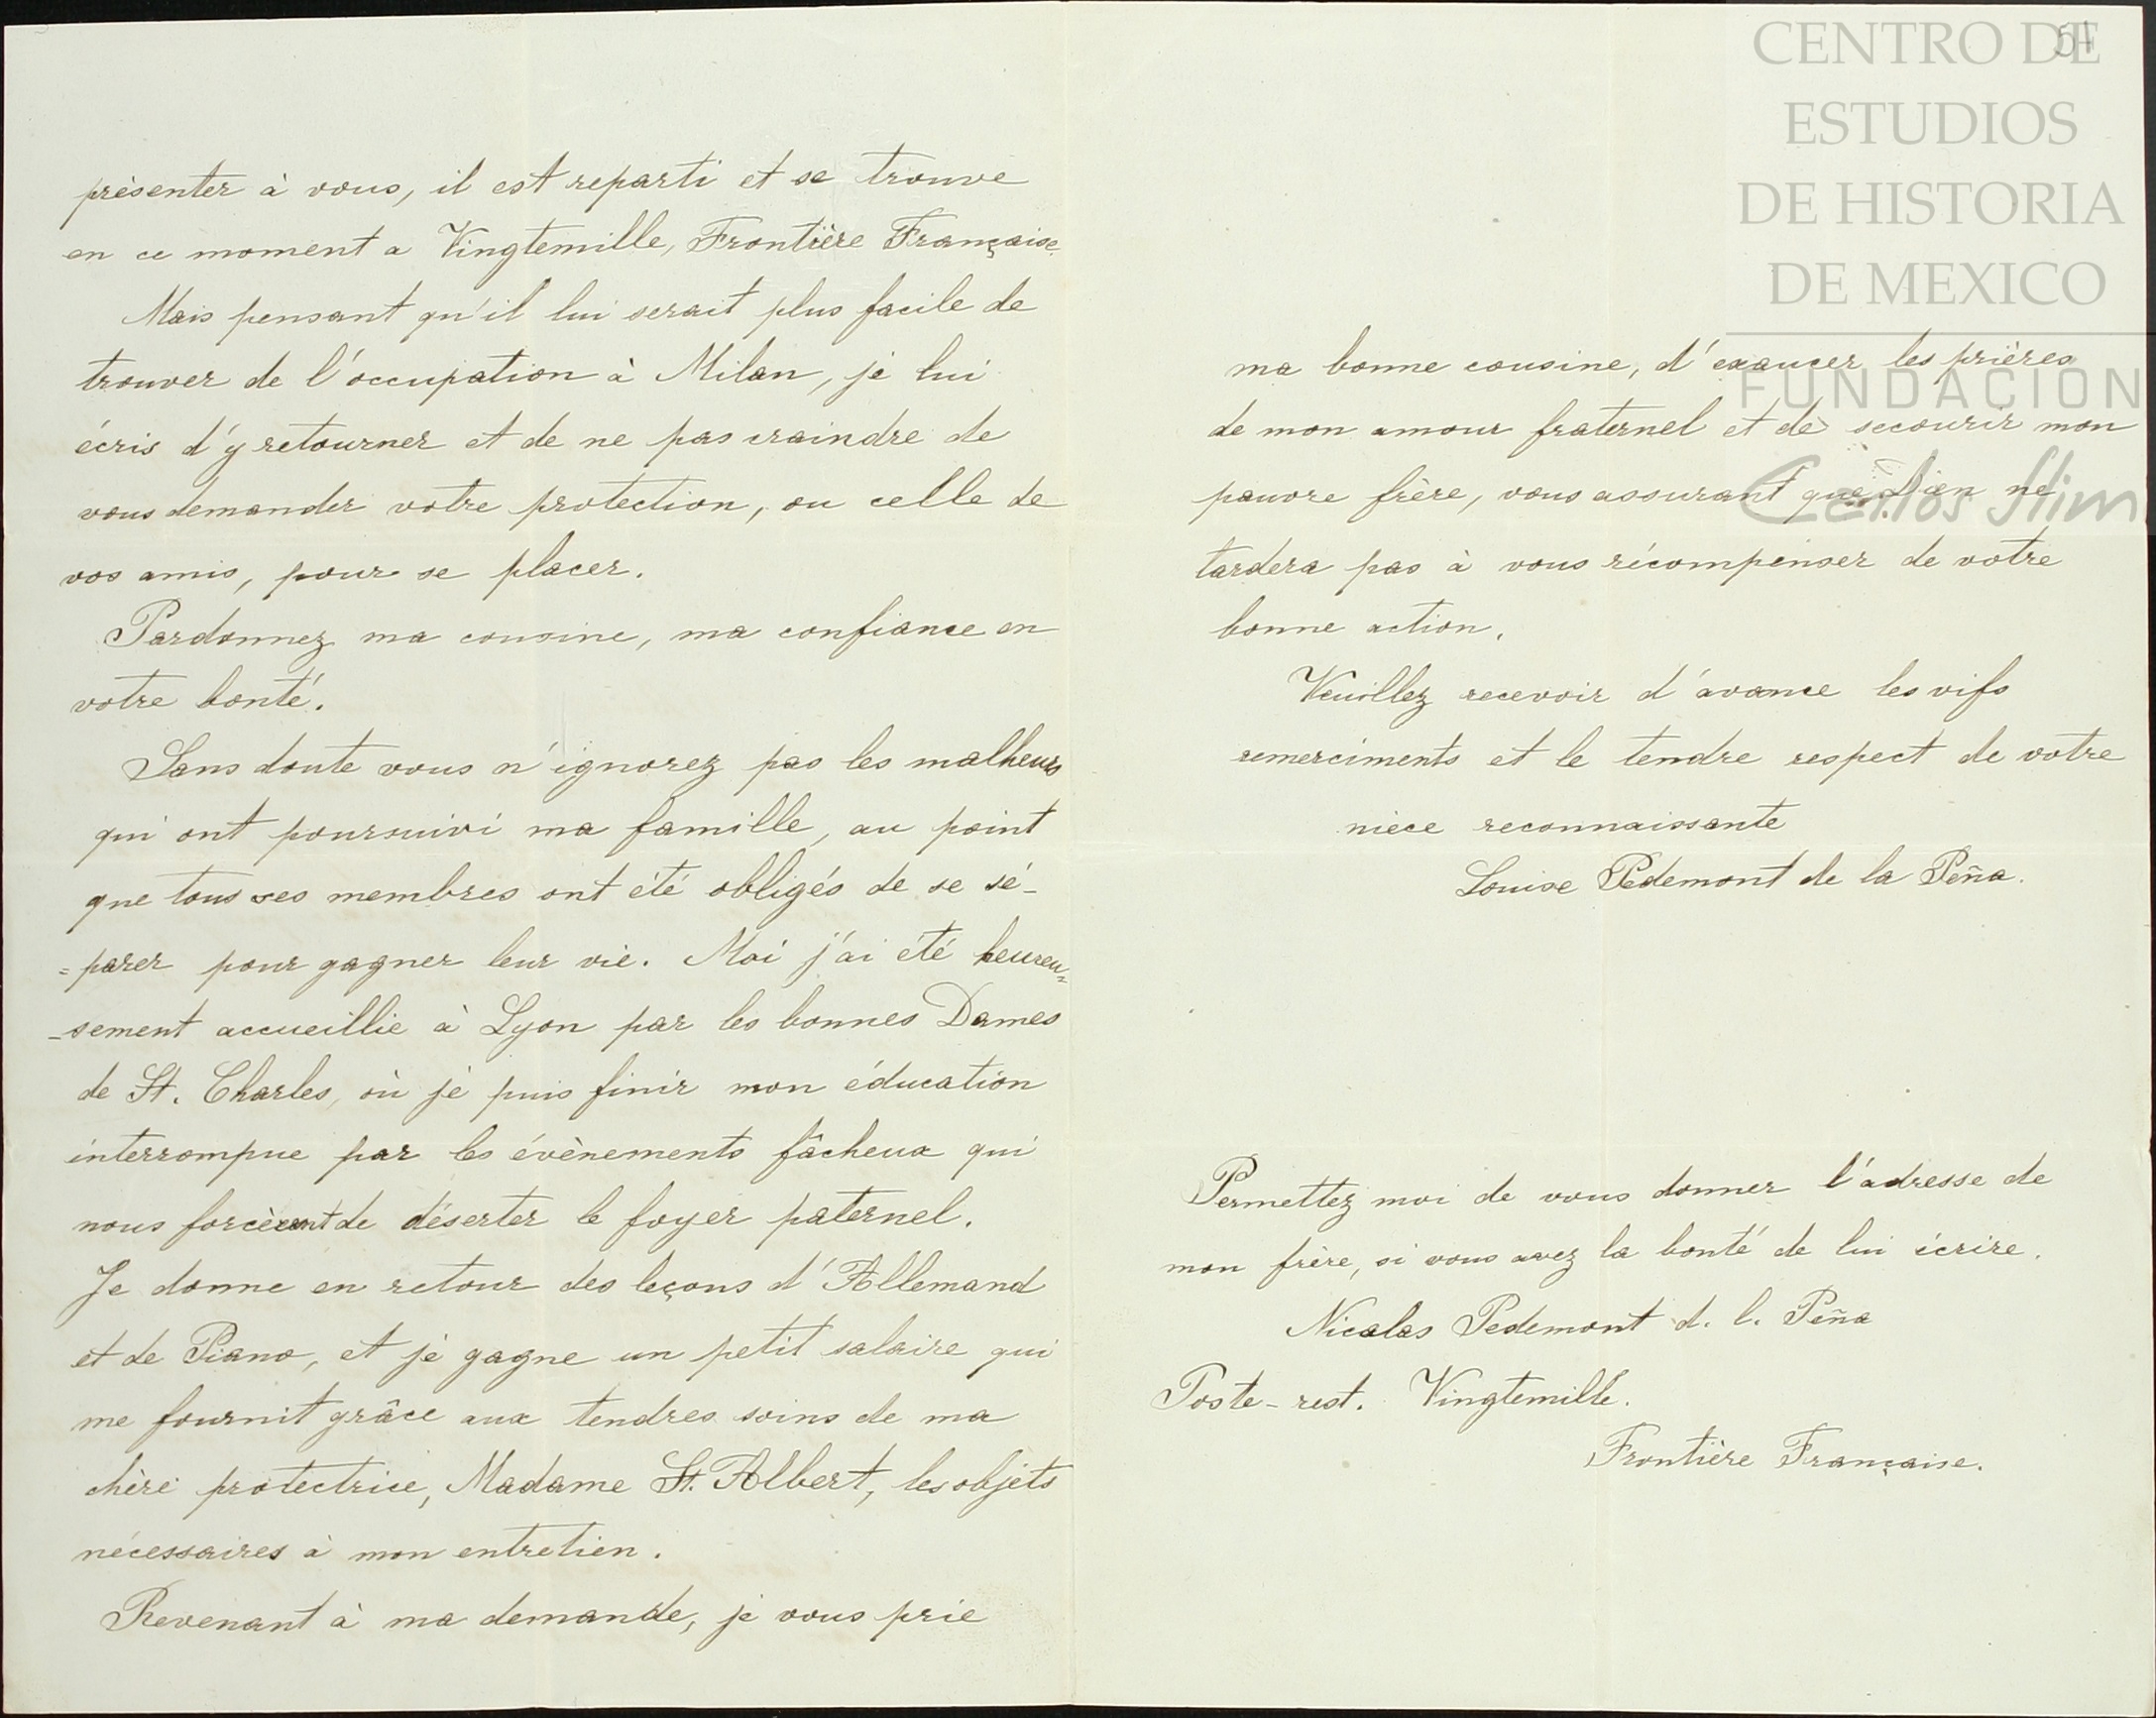 présenter à vous, il est reparti et se trouve
en ce moment a Vingtemille, Frontière Française.
Mais pensant qu'il lui serait plus facile de
trouver de l'occupation à Milan, je lui
écris d'y retourner et de ne pas craindre de
vous demander votre protection, ou celle de
vos amis, pour se placer.
Pardonnez ma cousine, ma confiance en
votre bonté.
Sans doute vous n'ignorez pas les malheurs
qui ont poursuivi ma famille, au point
que tous ses membres ont été obligés de se sé-
=parer pour gagner leur vie. Moi j'ai été heureu=
-sement accueillie à Lyon par les bonnes Dames
de St. Charles, où je puis finir mon éducation
interrompue par les évènements fâcheux qui
nous forcèrent de déserter le foyer paternel.
Je donne en retour des leçons d'Allemand
et de Piano, et je gagne un petit salaire qui
me fournit grâce aux tendres soins de ma
chère protectrice, Madame St. Albert, les objets
nécessaires à mon entretien.
Revenant à ma demande, je vous prie
54
CENTRO DE
ESTUDIOS
DE HISTORIA
DE MEXICO
ma bonne cousine, d'exaucer les prières
FUNDACION
de mon amour fraternel et de secourir mon
pauvre frère, vous assurant que Dieu ne
Carlos Slim
tardera pas à vous récompenser de votre
bonne action.
Veuillez recevoir d'avance les vifs
remerciments et le tendre respect de votre
nièce reconnaissante
Louise Pedemont de la Peña.
Permettez moi de vous donner l'adresse de
mon frère, si vous avez la bonté de lui écrire.
Nicolas Pedemont d. l. Peña
Poste-rest. Vingtemille.
Frontière Française.